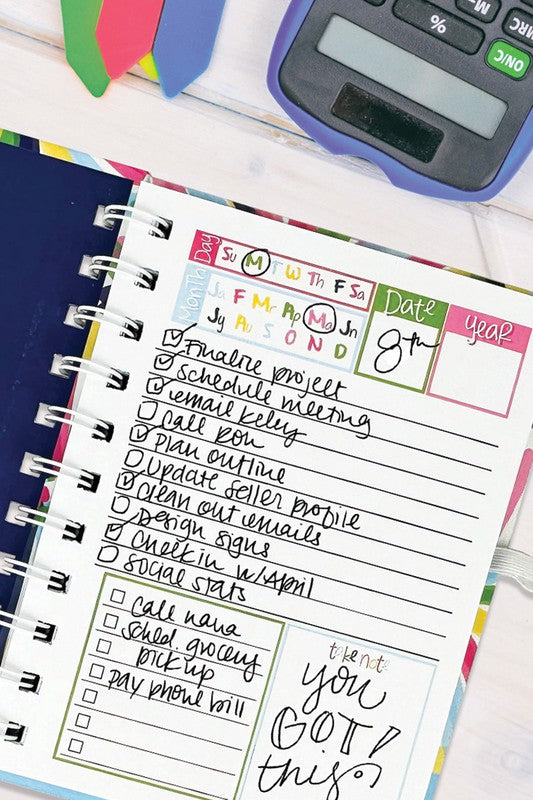 % M MRC
ON/C
Day Su M T W Th F Sa
Month Ja F Mr Ap Ma Jn
Jy Au S O N D
Date
8th
Year
Finalize project
Schedule meeting
email keley
call Ron
Plan outline
Update seller profile
Clean out emails
Design signs
Check in w/April
Social stats
call nana
sched. grocery
pick up
pay phone bill
take note
you
GOT
this!